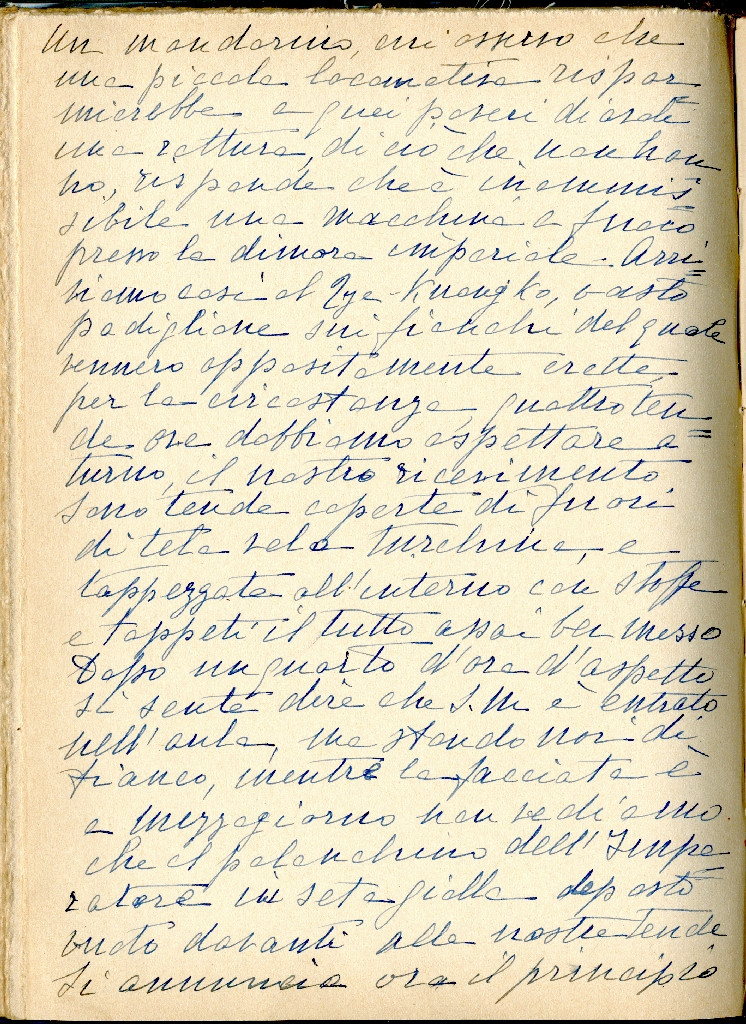 Un mandarino, cui osservo che
una piccola locomotiva rispar
mierebbe a quei poveri diavoli
una rottura, di ciò che non han
no, risponde che è inammis=
sibile una macchina a fuoco
presso la dimora imperiale. Arri=
viamo così al Tze-Kuangko, vasto
padiglione sui fianchi del quale
vennero appositamente erette,
per la circostanza, quattro ten=
de ove dobbiamo aspettare a=
turno, il nostro ricevimento
Sono tende coperte di fuori
di tela vela turchina, e
tappezzate all'interno con stoffe
e tappeti il tutto assai ben messo
Dopo un quarto d'ora d'aspetto
si sente dire che S.M. è entrato
nell'aula, ma stando noi di
fianco, mentre la facciata è
a mezzogiorno non vediamo
che il palanchino dell'Impe=
ratore in seta gialla deposto
vuoto davanti alle nostre tende
Si annuncia ora il principio